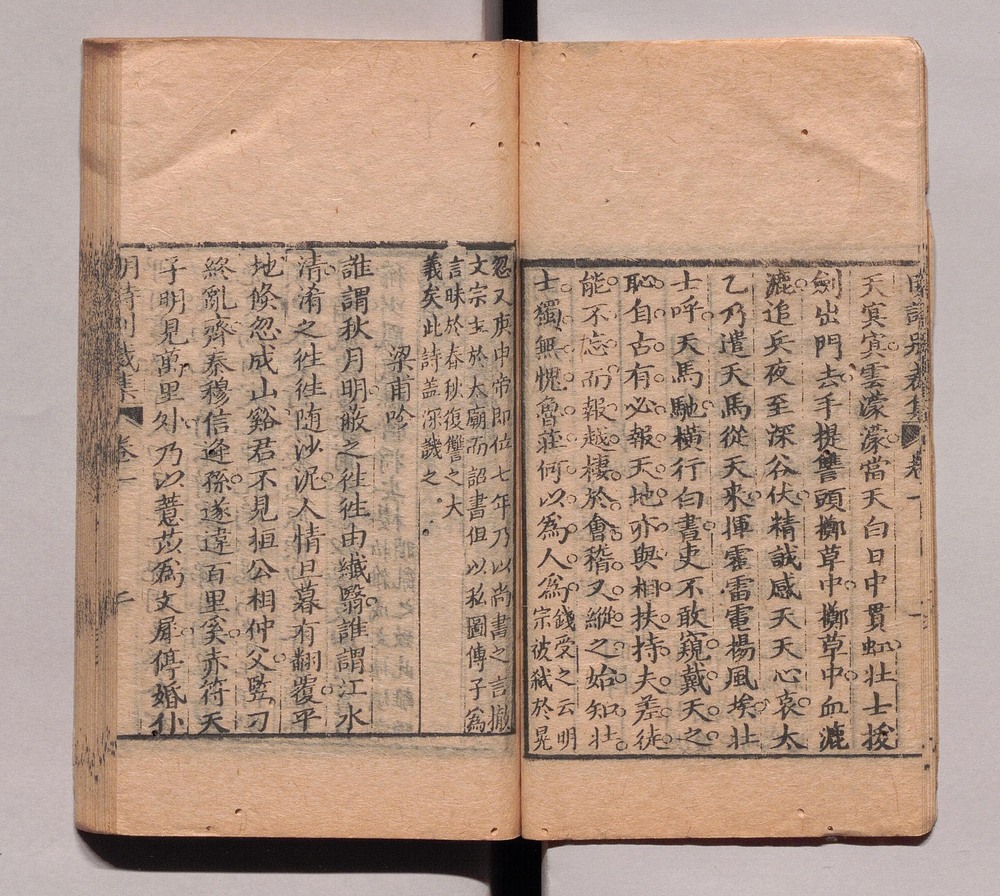 明詩別裁集 卷一 一
天冥冥雲濛濛當天白日中貫虹壯士拔
劍出門去手提讐頭擲草中擲草中血漉
漉追兵夜至深谷伏精誠感天天心哀太
乙乃遣天馬從天來揮霍雷電揚風埃壯
士呼天馬馳橫行白晝吏不敢窺戴天之
恥自古有必報天地亦與相扶持夫差徒
能不忘而報越棲於會稽又縱之始知壯
士獨無愧魯莊何以為人為
錢受之云明
宗彼弑於晃
忽又庚申帝即位七年乃以尚書之言撤
文宗主於太廟而詔書但以私圖傳子為
言昧於春秋復讐之大
義矣此詩盖深譏之
梁甫吟
誰謂秋月明蔽之徃徃由纖翳誰謂江水
清淆之徃徃随沙泥人情旦暮有翻覆平
地倏忽成山谿君不見桓公相仲父豎刁
終亂齊秦穆信逄孫遂違百里奚赤符天
子明見萬里外乃以薏苡為文犀停婚仆
明詩別裁集 卷一 二